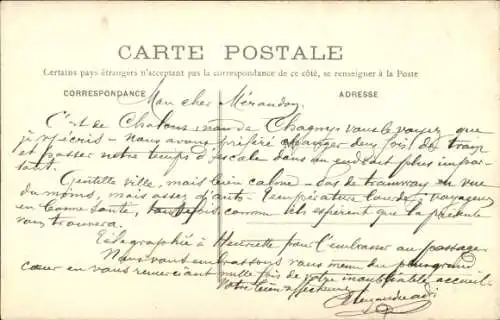 CARTE POSTALE
Certains pays étrangers n'acceptant pas la correspondance de ce côté, se renseigner à la Poste
CORRESPONDANCE
ADRESSE
Mon cher Mérandon,
C'est de Chalons, non de Chagny, vous le voyez que
je vous écris - Nous avons préféré changer deux fois de train
et passer notre temps d'escale dans un endroit plus impor-
tant.
Gentille ville, mais bien calme - Pas de tramway en vue
du moins, mais assez d'autos. Température lourde, voyageurs
en bonne santé, comme ils espèrent que la présente
vous trouvera.
Télégraphiée à Henriette pour l'embrasser au passage
Nous vous embrassons vous menu du plus grand
cœur en vous remerciant mille fois de votre inoubliable accueil
Votre bien affectueux